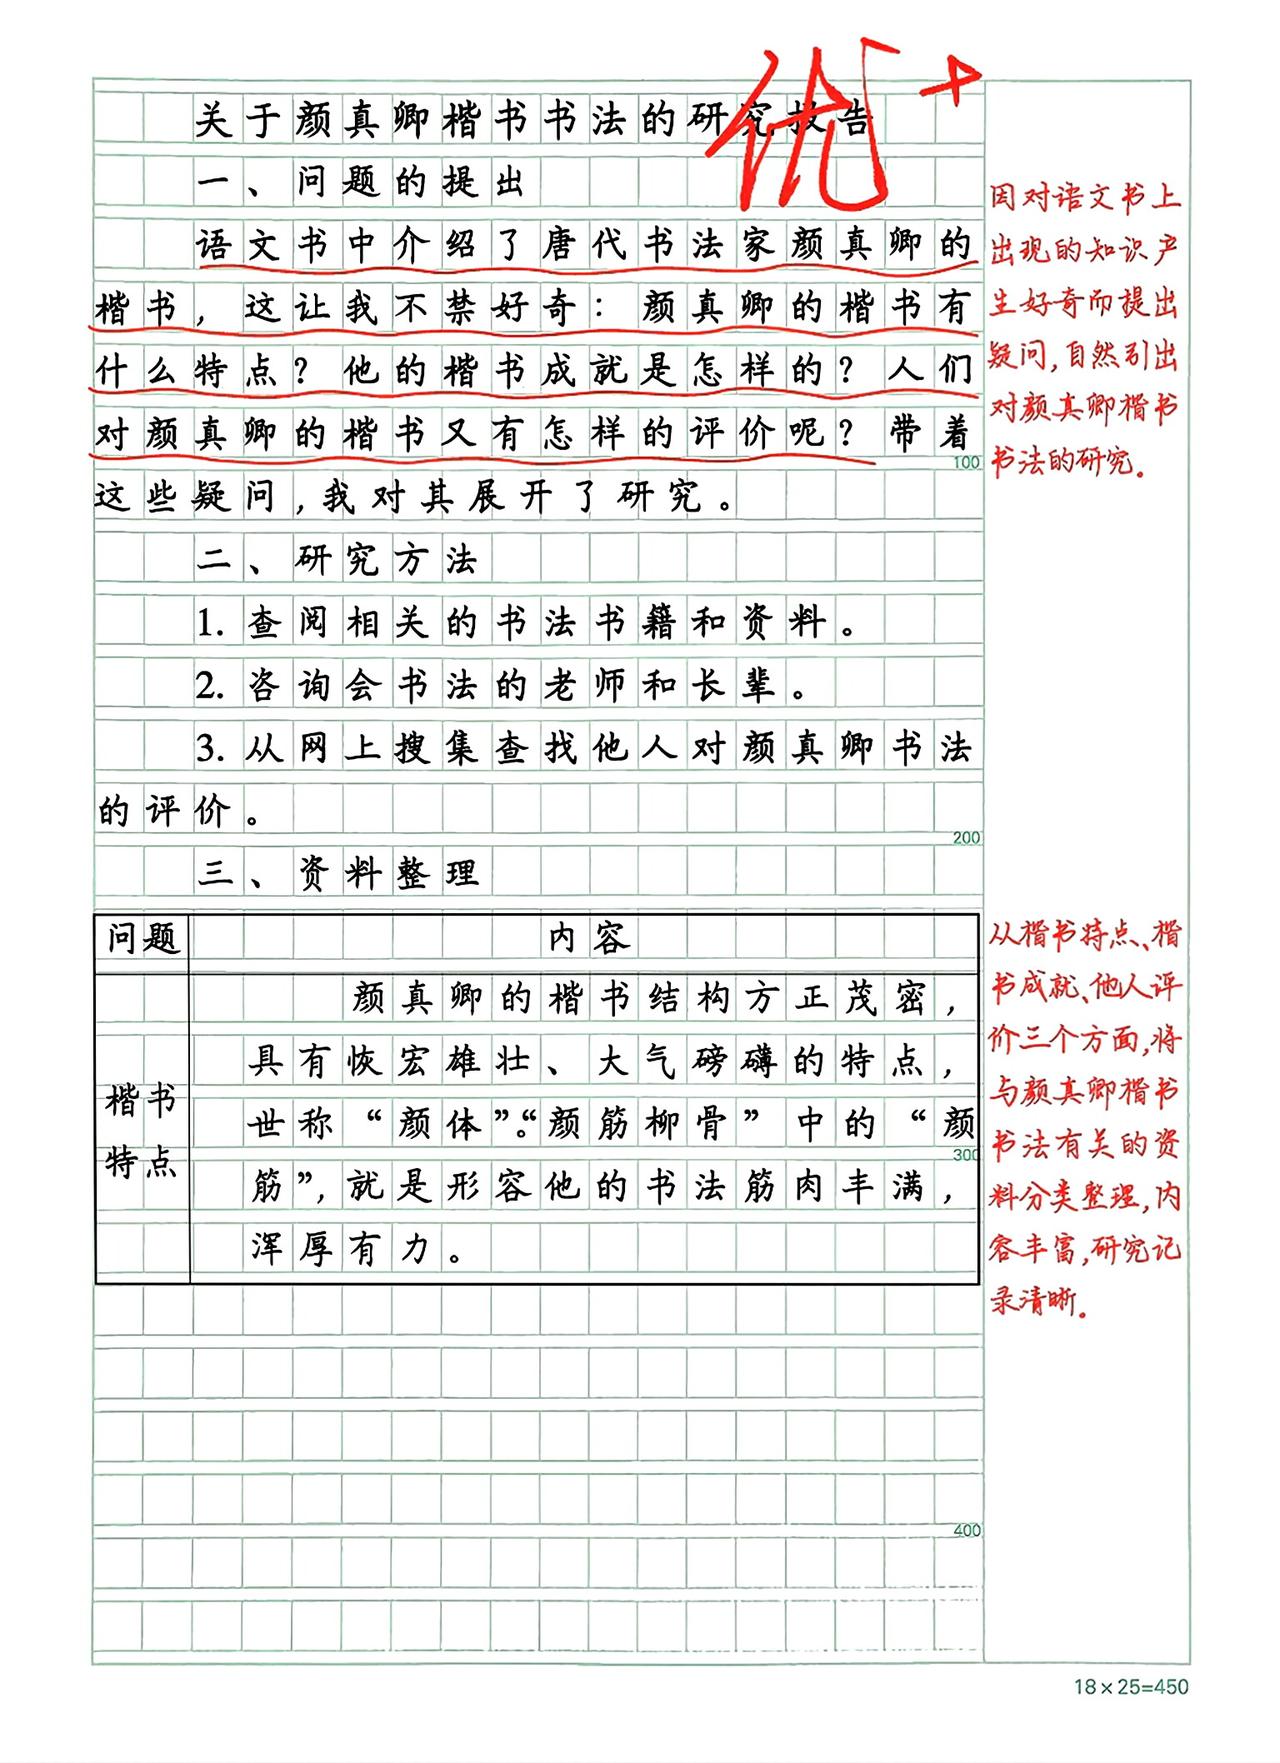 优+
关于颜真卿楷书书法的研究报告
一、问题的提出
语文书中介绍了唐代书法家颜真卿的
楷书，这让我不禁好奇：颜真卿的楷书有
什么特点？他的楷书成就是怎样的？人们
对颜真卿的楷书又有怎样的评价呢？带着
100
这些疑问，我对其展开了研究。
二、研究方法
1.查阅相关的书法书籍和资料。
2.咨询会书法的老师和长辈。
3.从网上搜集查找他人对颜真卿书法
的评价。
200
三、资料整理
问题 内容
楷书
特点
颜真卿的楷书结构方正茂密，
具有恢宏雄壮、大气磅礴的特点，
世称“颜体”。“颜筋柳骨”中的“颜
300
筋”，就是形容他的书法筋肉丰满，
浑厚有力。
400
因对语文书上
出现的知识产
生好奇而提出
疑问，自然引出
对颜真卿楷书
书法的研究。
从楷书特点、楷
书成就、他人评
价三个方面，将
与颜真卿楷书
书法有关的资
料分类整理，内
容丰富，研究记
录清晰。
18×25=450